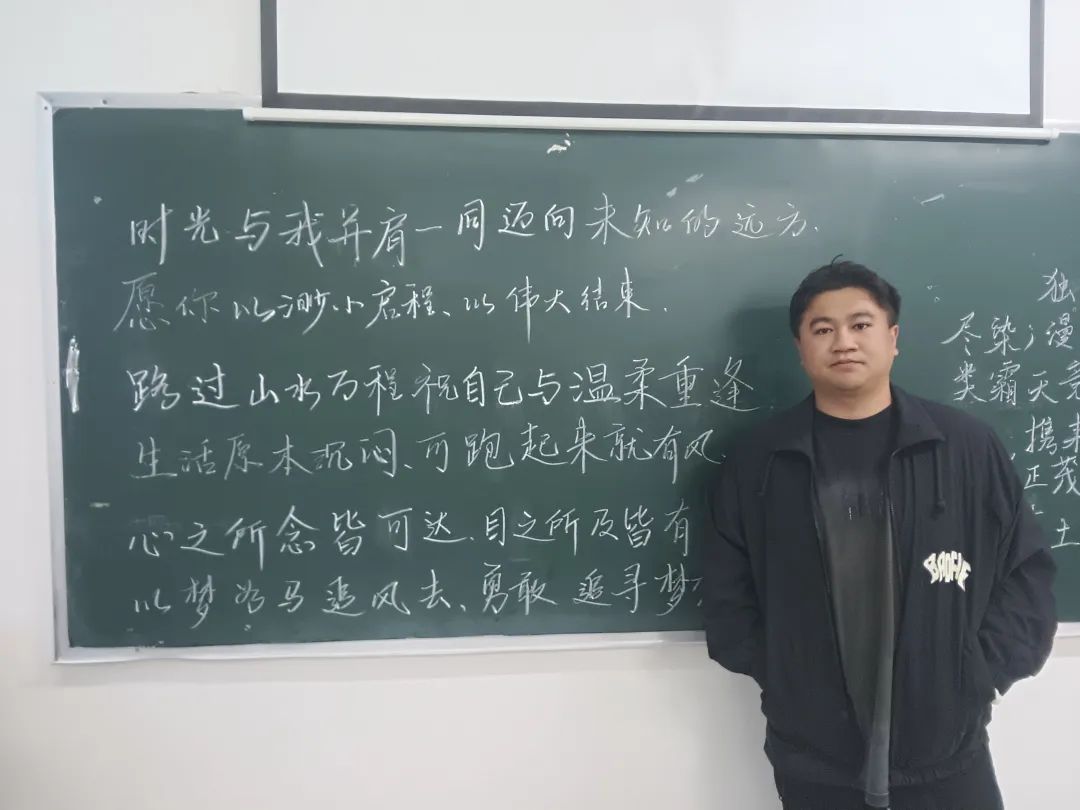 时光与我并肩一同迈向未知的远方.
愿你以渺小启程、以伟大结束.
跨过山水万程祝自己与温柔重逢
生活原本沉闷、可跑起来就有风.
心之所念皆可达、目之所及皆有
以梦为马追风去、勇敢追寻梦
独
尽染;漫
类霸天竞
携来
正茂
土